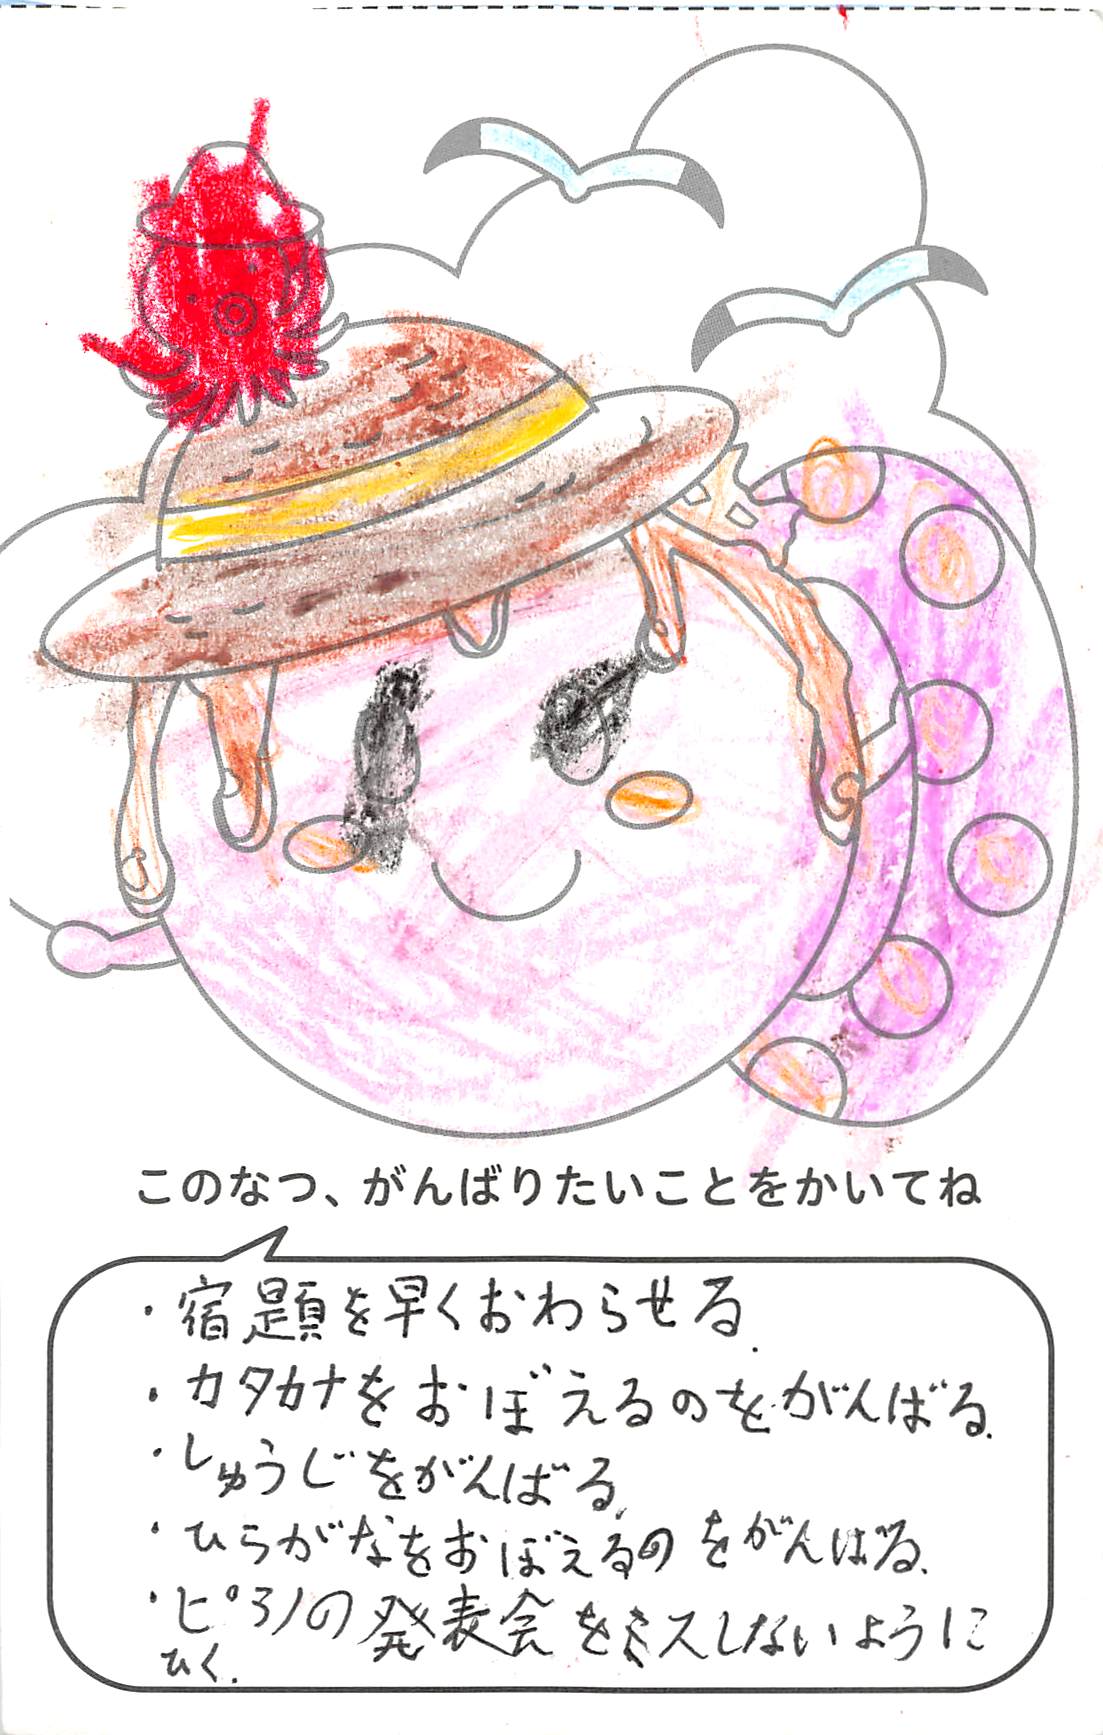 このなつ、がんばりたいことをかいてね
・宿題を早くおわらせる.
・カタカナをおぼえるのをがんばる.
・しゅうじをがんばる.
・ひらがなをおぼえるのをがんばる.
・ピアノの発表会をミスしないように
ひく.